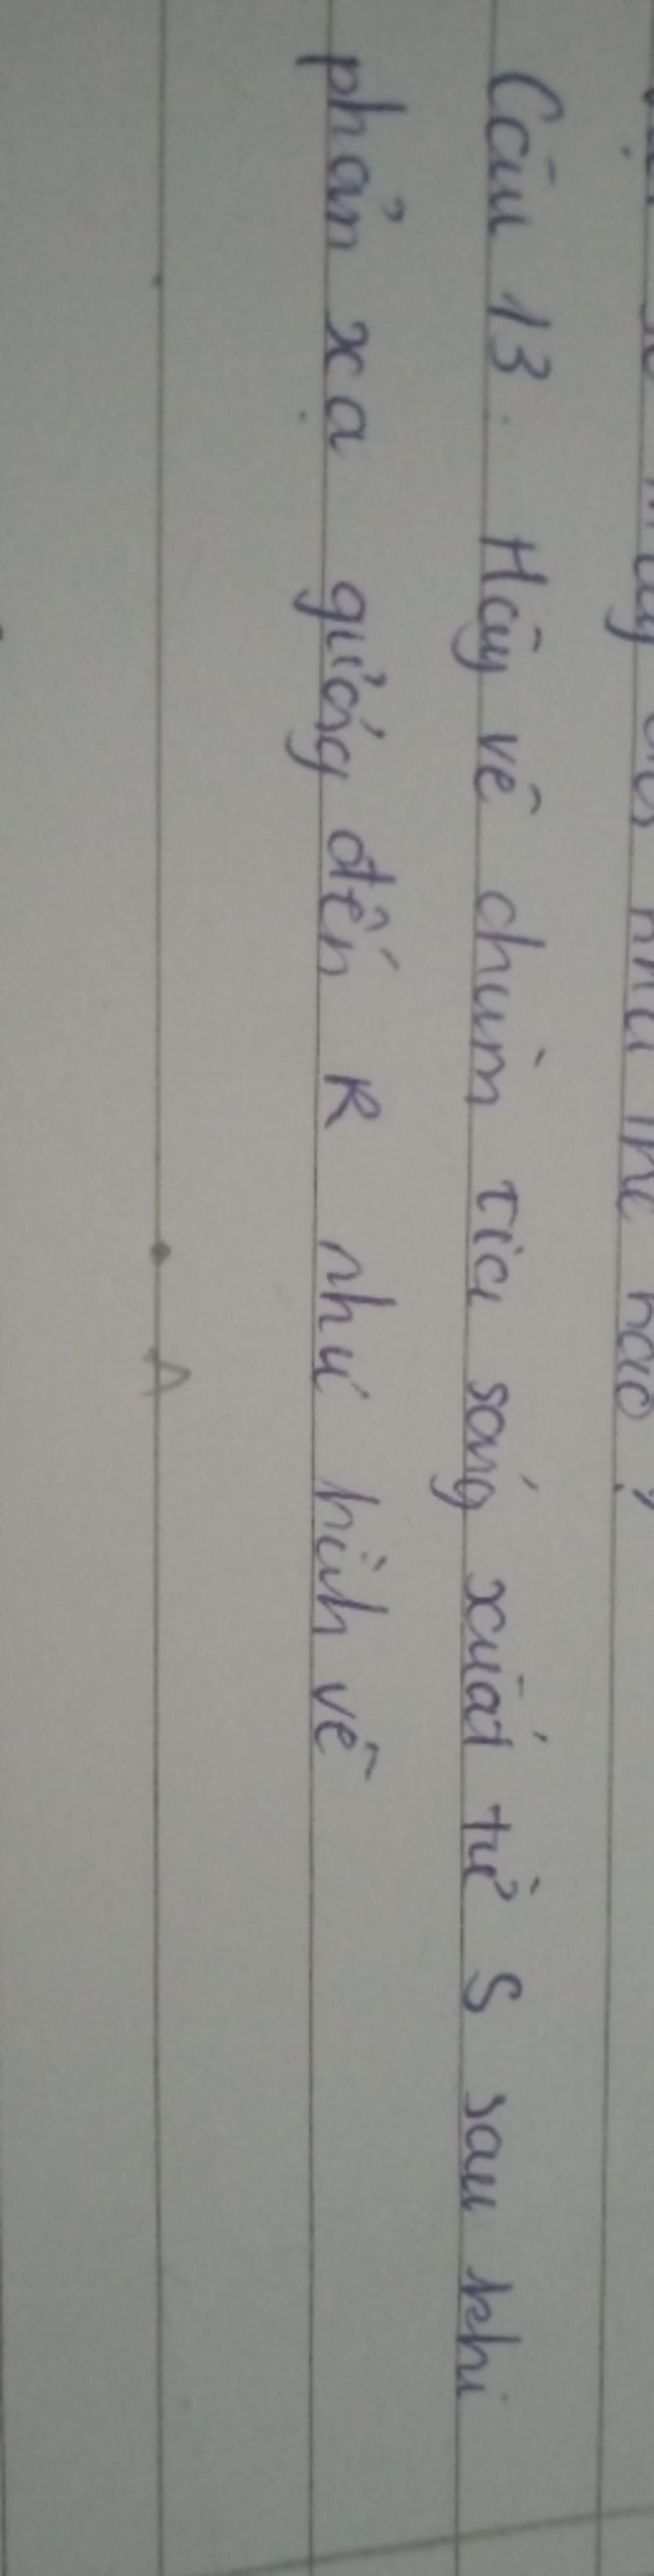 nào?
Câu 13. Hãy vẽ chùm tia sáng xuất từ S sau khi
phản xạ gương đến R như hình vẽ
A